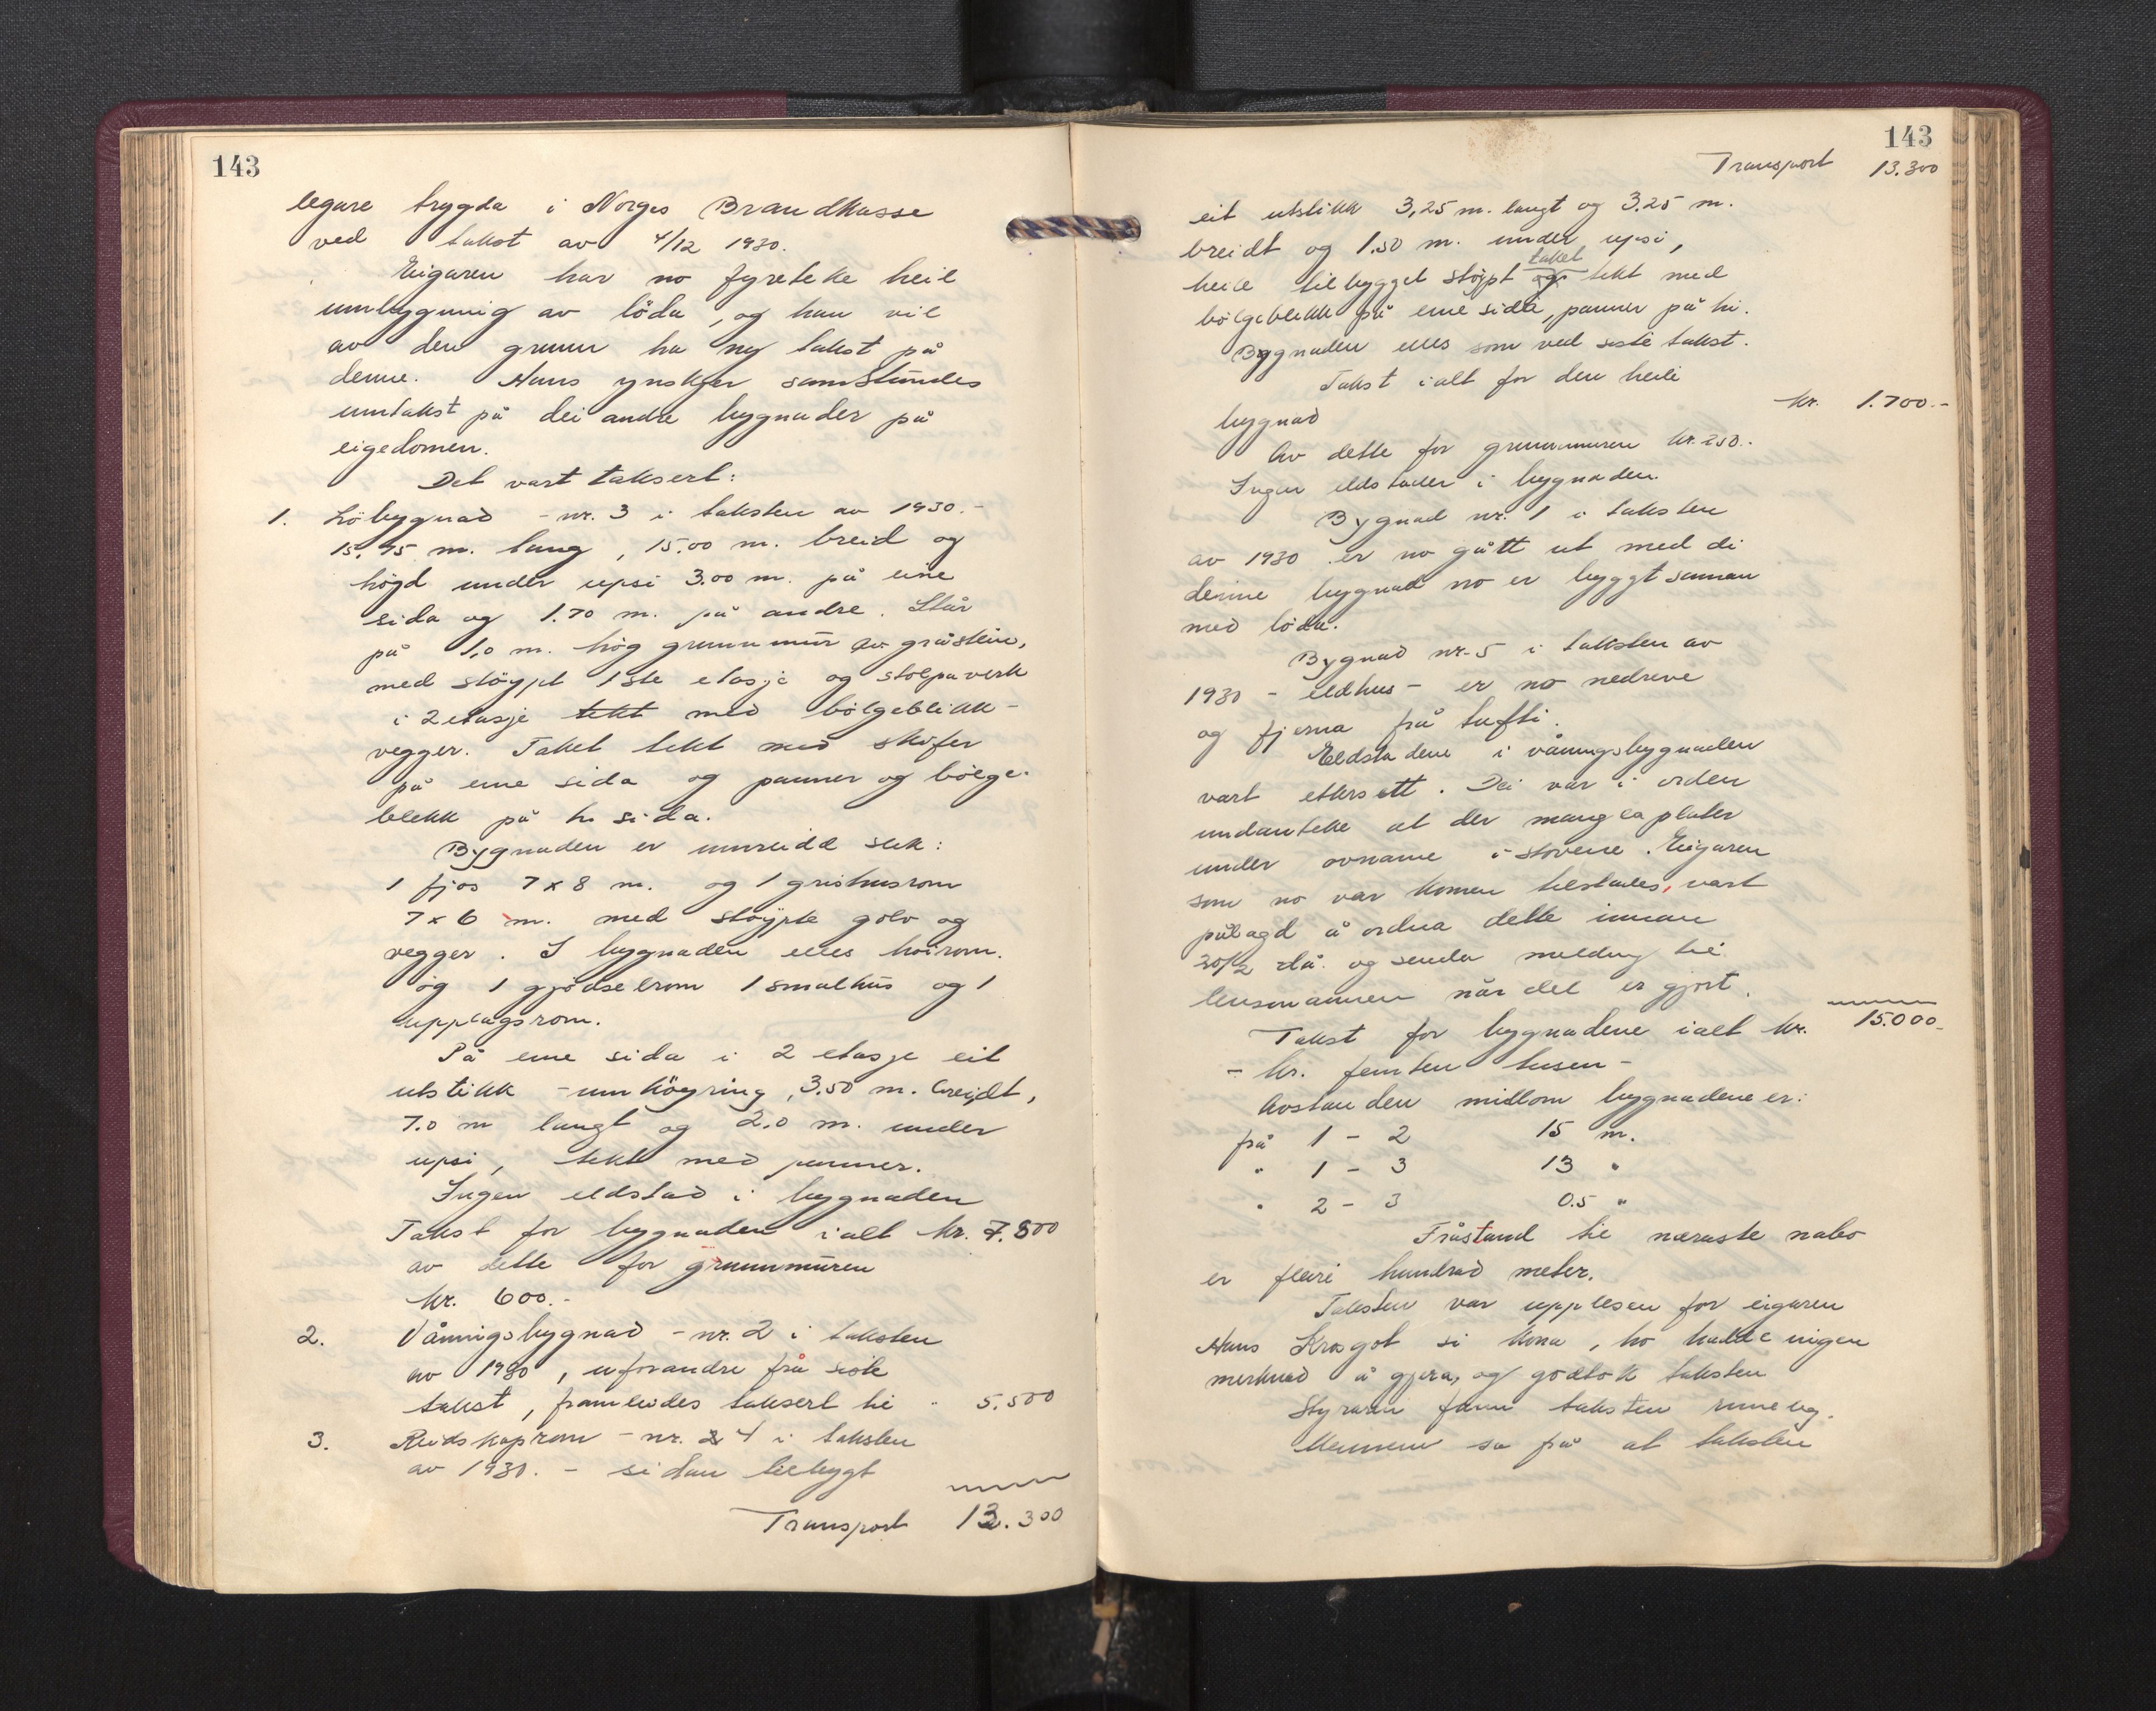 143
legare trygda i Norges Brandkasse
ved takst av 4/12 1930.
Eigaren har no fyreteke heil
umbygging av löda, og han vil
av den grunn ha ny takst på
denne. Hans ynskjer samstundes
umtakst på dei andre bygnader på
eigedomen.
Det vart taksert:
1. Löbygnad - nr. 3 i taksten av 1930.-
15.75 m. lang, 15.00 m. breid og
högd under upsi 3.00 m. på eine
sida og 1.70 m. på andre. Står
på 1,0 m. hög grunnmur av gråstein,
med stöypt 1ste etasje og stolpaverk
i 2 etasje tekt med bölgeblikk-
vegger. Taket tekt med skifer
på eine sida og panner og bölge-
blekk på hi sida.
Bygnaden er innreidd slik:
1 fjos 7 x 8 m. og 1 grishusrom
7 x 6 m. med stöypte golv og
vegger. I bygnaden elles höirom.
og 1 gjödselrom 1 smalhus og 1
upplagsrom.
På eine sida i 2 etasje eit
utstikk - innköyring, 3.50 m. breidt,
7.0 m langt og 2.0 m. under
upsi, tekt med panner.
Ingen eldstad i bygnaden
Takst for bygnaden ialt kr. 7.800
av dette for grunnmuren
kr. 600.-
2. Våningsbygnad - nr. 2 i taksten
av 1930, uforandre frå siste
takst, framleides taksert til " 5.500
3. Reidskaprom - nr. 4 i taksten
av 1930. - sidan tilbygt
Transport 13.300
143
Transport 13.300
eit utstikk 3,25 m. langt og 3.25 m.
breidt og 1.50 m. under upsi,
taket
heile tilbygget stöypt og tekt med
bölgeblekk på eine sida, panner på hi.
Bygnaden elles som ved siste takst.
Takst ialt for den heile
bygnad kr. 1.700.-
Av dette for grunnmuren kr. 250.-
Ingen eldstader i bygnaden.
Bygnad nr. 1 i taksten
av 1930 er no gått ut med di
denne bygnad no er byggt saman
med löda.
Bygnad nr. 5 i taksten av
1930 - eldhus - er no nedreve
og fjerna frå tufti.
Eldstadene i våningsbygnaden
vart ettersett. Dei var i orden
undanteke at der mangla plater
under ovnane i stovene. Eigaren
som no var komen tilstades, vart
pålagd å ordna dette innan
30/12 då. og senda melding til
lensmannen når det er gjort.
Takst for bygnadene ialt kr. 15.000.-
- kr. femten tusen -
Avstanden millom bygnadene er:
frå 1 - 2 15 m.
" 1 - 3 13 "
" 2 - 3 0.5 "
Fråstand til næraste nabo
er fleiri hundrad meter.
Taksten var upplesen for eigaren
Hans Krosgot si kona, ho hadde ingen
merknad å gjera, og godtok taksten
Styraren fann taksten rimeleg.
Mennene sa frå at taksten